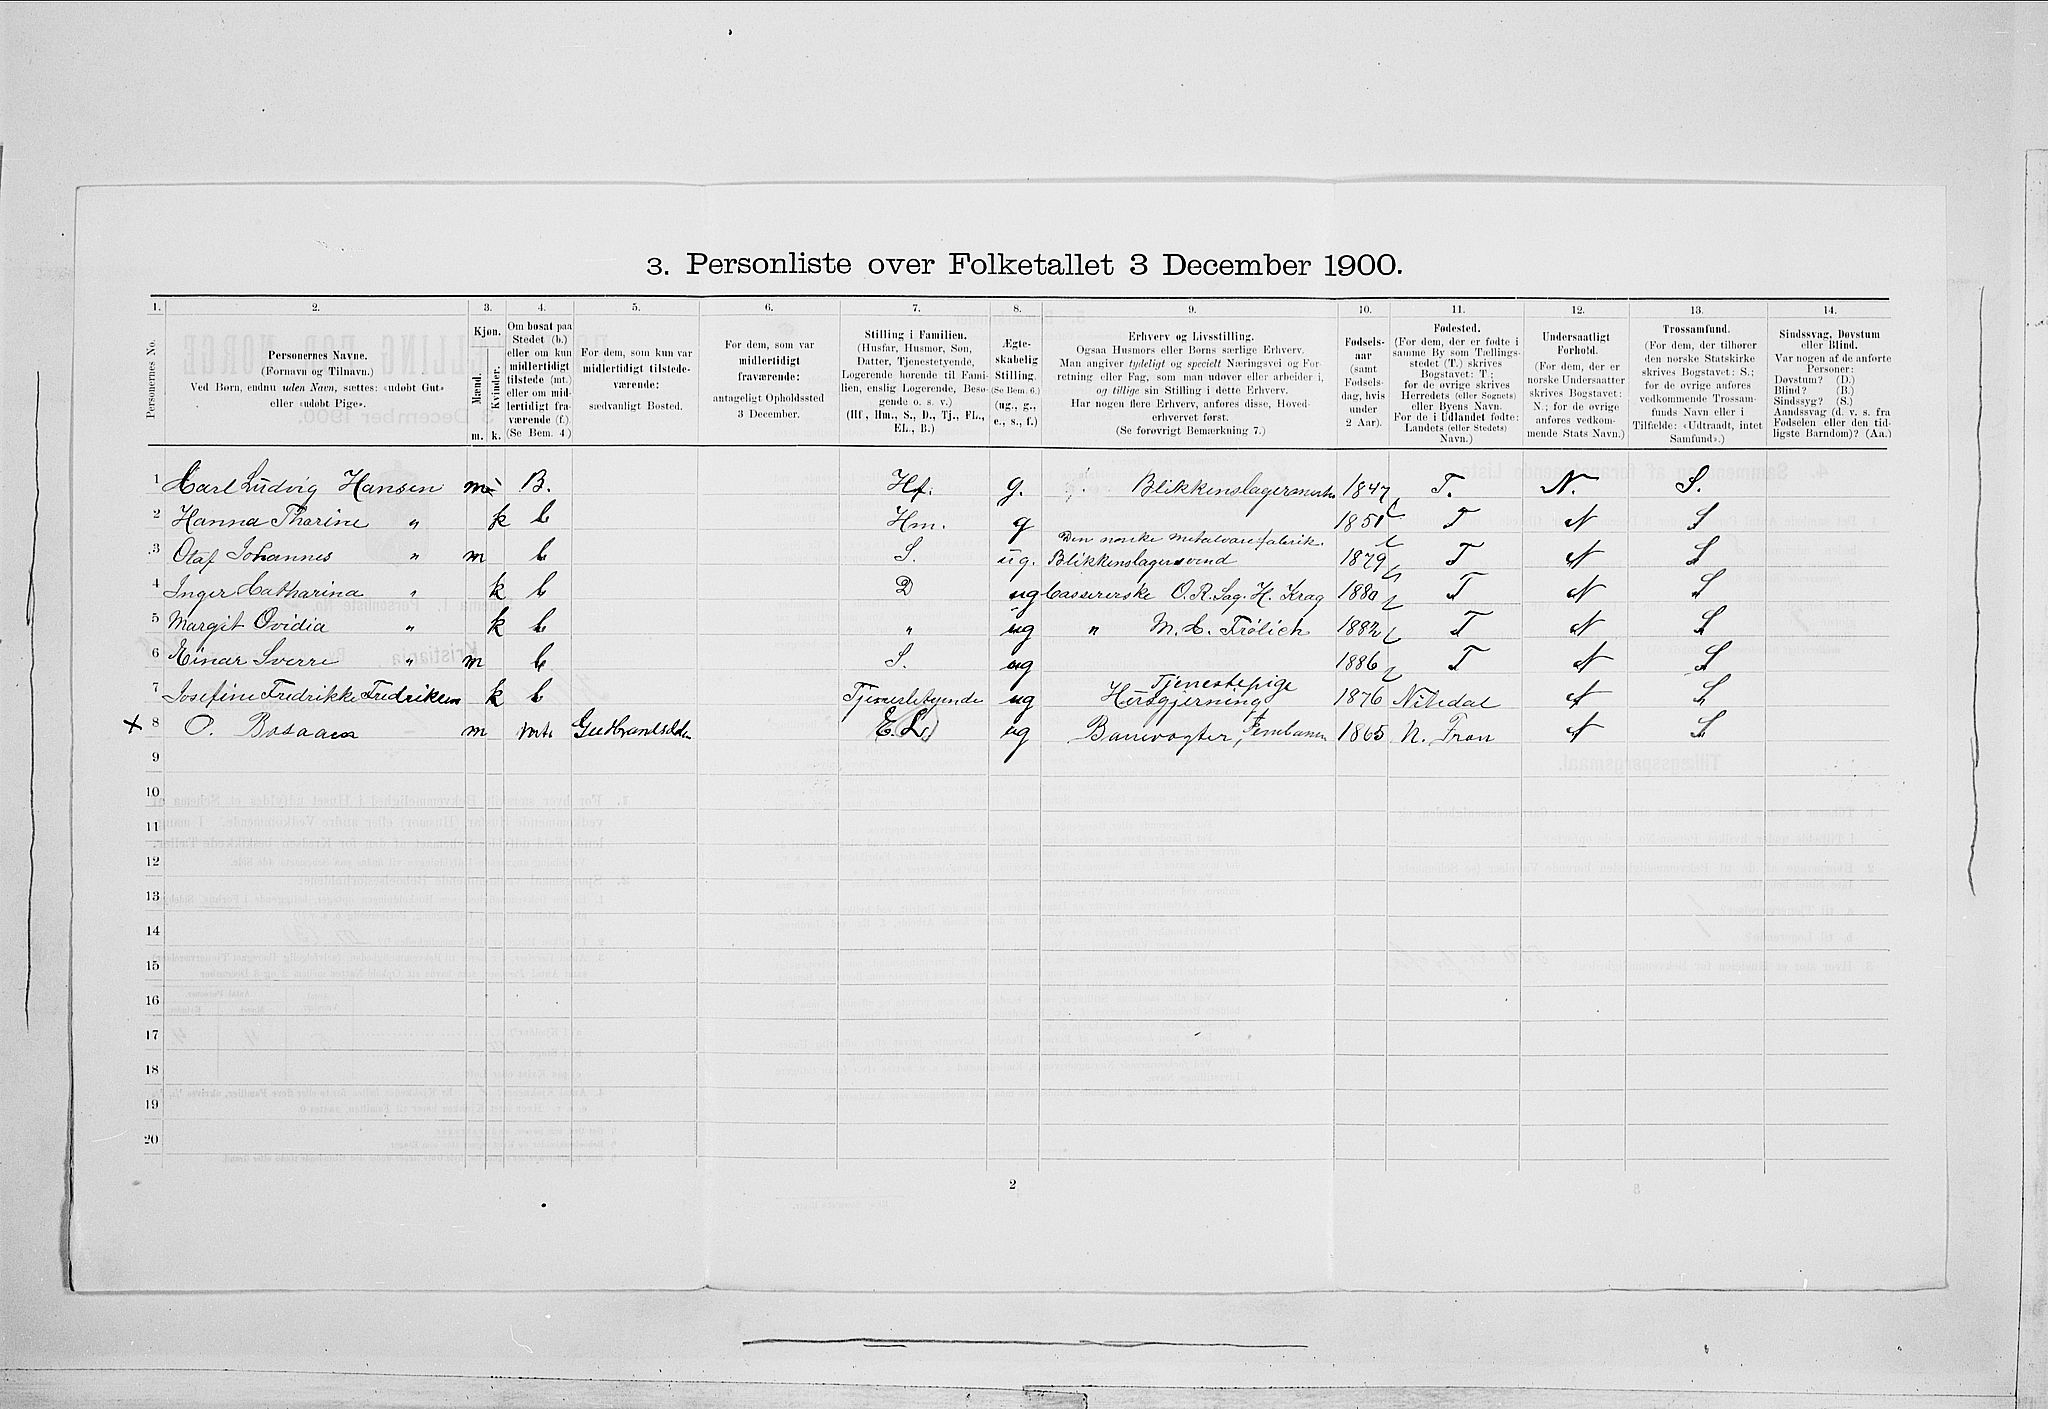 3. Personliste over Folketallet 3 December 1900.
1. 2. 3. 4. 5. 6. 7. 8. 9. 10. 11. 12. 13. 14.
Personernes No.
Personernes Navne.
(Fornavn og Tilnavn.)
Ved Børn, endnu uden Navn, sættes: «udøbt Gut»
eller «udøbt Pige».
Kjøn.
Mænd. Kvinder.
m. k.
Om bosat paa
Stedet (b.)
eller om kun
midlertidigt
tilstede (mt.)
eller om mid-
lertidigt fra-
værende (f.).
(Se Bem. 4.)
For dem, som kun var
midlertidigt tilstede-
værende:
sædvanligt Bosted.
For dem, som var
midlertidigt
fraværende:
antageligt Opholdssted
3 December.
Stilling i Familien.
(Husfar, Husmor, Søn,
Datter, Tjenestetyende,
Logerende hørende til Fami-
lien, enslig Logerende, Besø-
gende o. s. v.)
(Hf., Hm., S., D., Tj., FL.,
EL., B.)
Ægte-
skabelig
Stilling.
(Se Bem. 6.)
(ug., g.,
e., s., f.)
Erhverv og Livsstilling.
Ogsaa Husmors eller Børns særlige Erhverv.
Man angiver tydeligt og specielt Næringsvei og For-
retning eller Fag, som man udøver eller arbeider i,
og tillige sin Stilling i dette Erhverv.
Har nogen flere Erhverv, anføres disse, Hoved-
erhvervet først.
(Se forøvrigt Bemærkning 7.)
Fødsels-
aar
(samt
Fødsels-
dag, hvis
under
2 Aar).
Fødested.
(For dem, der er fødte i
samme By som Tællings-
stedet (T.) skrives
Bogstavet: T;
for de øvrige skrives
Herredets (eller Sognets)
eller Byens Navn.
For de i Udlandet fødte:
Landets (eller Stedets)
Navn.)
Undersaatligt
Forhold.
(For dem, der er
norske Undersaatter
skrives Bogstavet:
N.; for de øvrige
anføres vedkom-
mende Stats Navn.)
Trossamfund.
(For dem, der tilhører
den norske Statskirke
skrives Bogstavet: S.;
for de øvrige anføres
vedkommende Trossam-
funds Navn eller i
Tilfælde: «Udtraadt, intet
Samfund».)
Sindssvag, Døvstum
eller Blind.
Var nogen af de anførte
Personer:
Døvstum? (D.)
Blind? (B.)
Sindssyg? (S.)
Aandssvag (d. v. s. fra
Fødselen eller den tid-
ligste Barndom)? (Aa.)
1 Carl Ludvig Hansen m B. Hf. g. Blikkenslagermester 1847 T. N. S.
2 Hanna Tharine " k b Hm. g 1851 T N S
3 Olaf Johannes " m b S. ug. Den norske Metalvarefabrik. Blikkenslagersvend 1879 T N S
4 Inger Catharina " k b D ug Cassererske O.R.Sag. H. Krag 1880 T N S
5 Margit Ovidia " k b " ug " M. C. Frölich 1882 T N S
6 Einar Sverre " m b S. ug 1886 T N S
7 Josefine Fredrikke Fredriksen k b Tjenestetyende ug Tjenestepige Husgjerning 1876 Nitedal N S
× 8 O. m mt. Gudbrandsdalen E. L. ug Banevogter, Jernbanen 1865 N. Fron N S
9
10
11
12
13
14
15
16
17
18
19
20
2